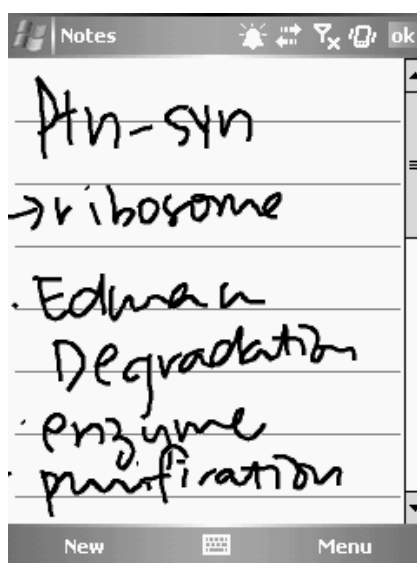 Notes ok
Ptn-syn
→ribosome
· Edman
Degradation
· enzyme
· purification
New Menu